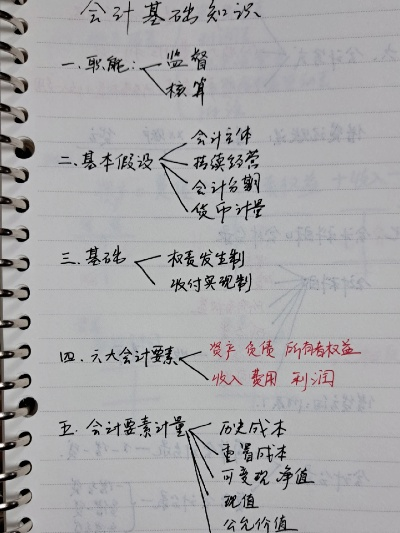 会计基础知识
一.职能:
监督
核算
二.基本假设
会计主体
持续经营
会计分期
货币计量
三.基础
权责发生制
收付实现制
四.六大会计要素
资产 负债 所有者权益
收入 费用 利润
五.会计要素计量
历史成本
重置成本
可变现净值
现值
公允价值